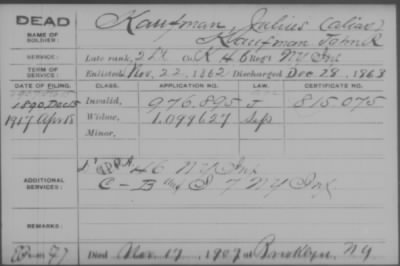 DEAD
NAME OF SOLDIER:
Kaufman, Julius (alias)
Kaufman John
SERVICE:
Late rank, 2 Lt Co. K 46 Reg't NY Inf
TERM OF SERVICE:
Enlisted Nov. 22, 1862 Discharged Dec 28, 1863
DATE OF FILING. CLASS. APPLICATION NO. CERTIFICATE NO.
1890, Dec 15 Invalid, 976.895 J 815.075
1917 Apr Widow, 1.099627
Minor,
ADDITIONAL SERVICES:
46 NY Inf
C - B 7 NY Inf
REMARKS:
Died Nov. 17, 1907 at Brooklyn, NY